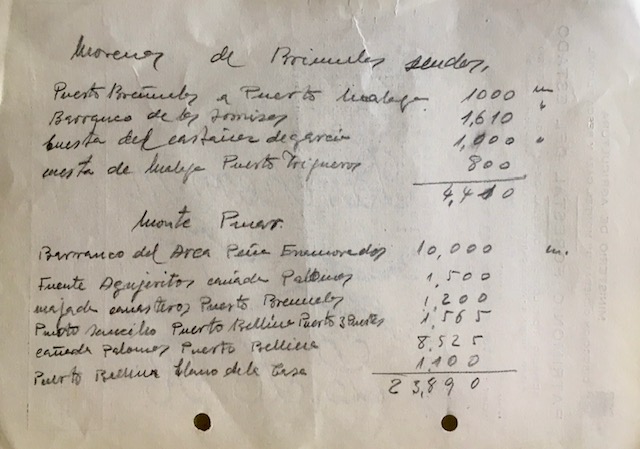 Morenas de Brinuelos sendos.
Puerto Breñuelos a Puerto Malaga 1000 m
Barranco de los Tomisas 1,610 "
Cuesta del castaines de garcia 1,000 "
cuesta de Malaga Puerto Trigueros 800
4,410
Monte Pinar.
Barranco del Arca Peña Enamorados 10,000 m.
Fuente Agujeritos cañada Palomos 1,500
majada canasteros Puerto Brenuelos 1,200
Puerto Puerto Bellina Puerto 3 Puertes 1,565
cañada Palomos Puerto Bellina 8,525
Puerto Bellina Llano de la Casa 1,100
23,890